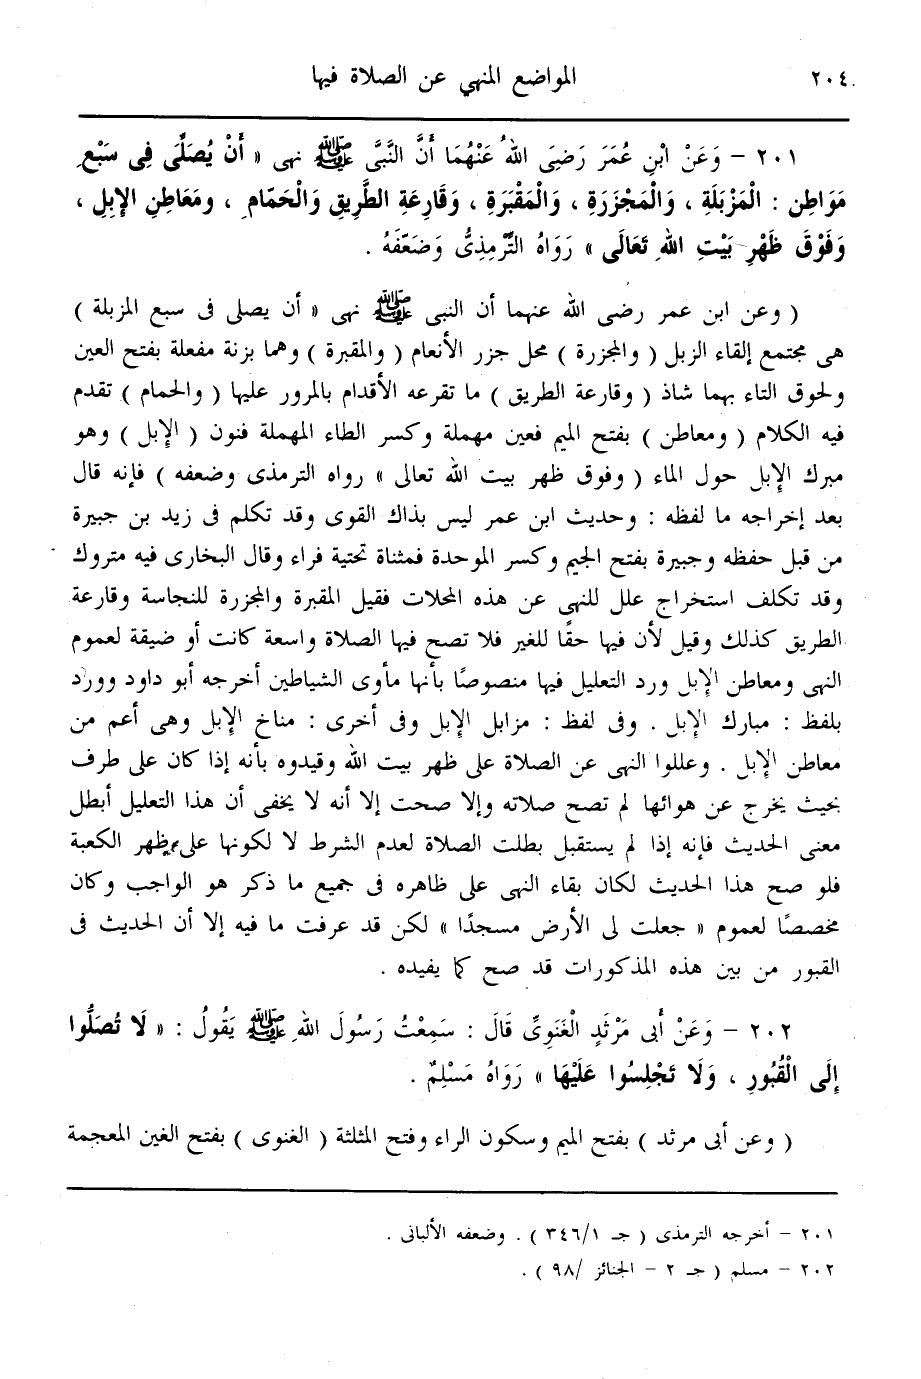 ٢٠٤ المواضع المنهي عن الصلاة فيها
٢٠١ – وَعَنْ ابْنِ عُمَرَ رَضِىَ اللهُ عَنْهُمَا أَنَّ النَّبِىَّ ﷺ نهى « أَنْ يُصَلَّى فِى سَبْعِ
مَوَاطِن : الْمَزْبَلَةِ ، وَالْمَجْزَرَةِ ، وَالْمَقْبَرَةِ ، وَقَارِعَةِ الطَّرِيقِ وَالْحَمَّامِ ، ومَعَاطِنِ الإِبِلِ ،
وَفَوْقَ ظَهْرِ بَيْتِ اللهِ تَعَالَى » رَوَاهُ التِّرْمِذِىُّ وَضَعَّفَهُ .
( وعن ابن عمر رضى الله عنهما أن النبى ﷺ نهى « أن يصلى فى سبع المزبلة )
هى مجتمع إلقاء الزبل ( والمجزرة ) محل جزر الأنعام ( والمقبرة ) وهما بزنة مفعلة بفتح العين
ولحوق التاء بهما شاذ ( وقارعة الطريق ) ما تقرعه الأقدام بالمرور عليها ( والحمام ) تقدم
فيه الكلام ( ومعاطن ) بفتح الميم فعين مهملة وكسر الطاء المهملة فنون ( الإبل ) وهو
مبرك الإبل حول الماء ( وفوق ظهر بيت الله تعالى » رواه الترمذى وضعفه ) فإنه قال
بعد إخراجه ما لفظه : وحديث ابن عمر ليس بذاك القوى وقد تكلم فى زيد بن جبيرة
من قبل حفظه وجبيرة بفتح الجيم وكسر الموحدة فمثناة تحتية فراء وقال البخارى فيه متروك
وقد تكلف استخراج علل للنهى عن هذه المحلات فقيل المقبرة والمجزرة للنجاسة وقارعة
الطريق كذلك وقيل لأن فيها حقًا للغير فلا تصح فيها الصلاة واسعة كانت أو ضيقة لعموم
النهى ومعاطن الإبل ورد التعليل فيها منصوصًا بأنها مأوى الشياطين أخرجه أبو داود وورد
بلفظ : مبارك الإبل . وفى لفظ : مزابل الإبل وفى أخرى : مناخ الإبل وهى أعم من
معاطن الإبل . وعللوا النهى عن الصلاة على ظهر بيت الله وقيدوه بأنه إذا كان على طرف
بحيث يخرج عن هوائها لم تصح صلاته وإلا صحت إلا أنه لا يخفى أن هذا التعليل أبطل
معنى الحديث فإنه إذا لم يستقبل بطلت الصلاة لعدم الشرط لا لكونها على ظهر الكعبة
فلو صح هذا الحديث لكان بقاء النهى على ظاهره فى جميع ما ذكر هو الواجب وكان
مخصصًا لعموم « جعلت لى الأرض مسجدًا » لكن قد عرفت ما فيه إلا أن الحديث فى
القبور من بين هذه المذكورات قد صح كما يفيده .
٢٠٢ – وَعَنْ أَبى مَرْثَدٍ الْغَنَوِىِّ قَالَ : سَمِعْتُ رَسُولَ اللهِ ﷺ يَقُولُ : « لَا تُصَلُّوا
إِلَى الْقُبُورِ ، وَلَا تَجْلِسُوا عَلَيْهَا » رَوَاهُ مَسْلِمٌ .
( وعن أبى مرثد ) بفتح الميم وسكون الراء وفتح المثلثة ( الغنوى ) بفتح الغين المعجمة
٢٠١ – أخرجه الترمذى ( جـ ٣٤٦/١ ) . وضعفه الألبانى .
٢٠٢ – مسلم ( جـ ٢ – الجنائز /٩٨ ) .